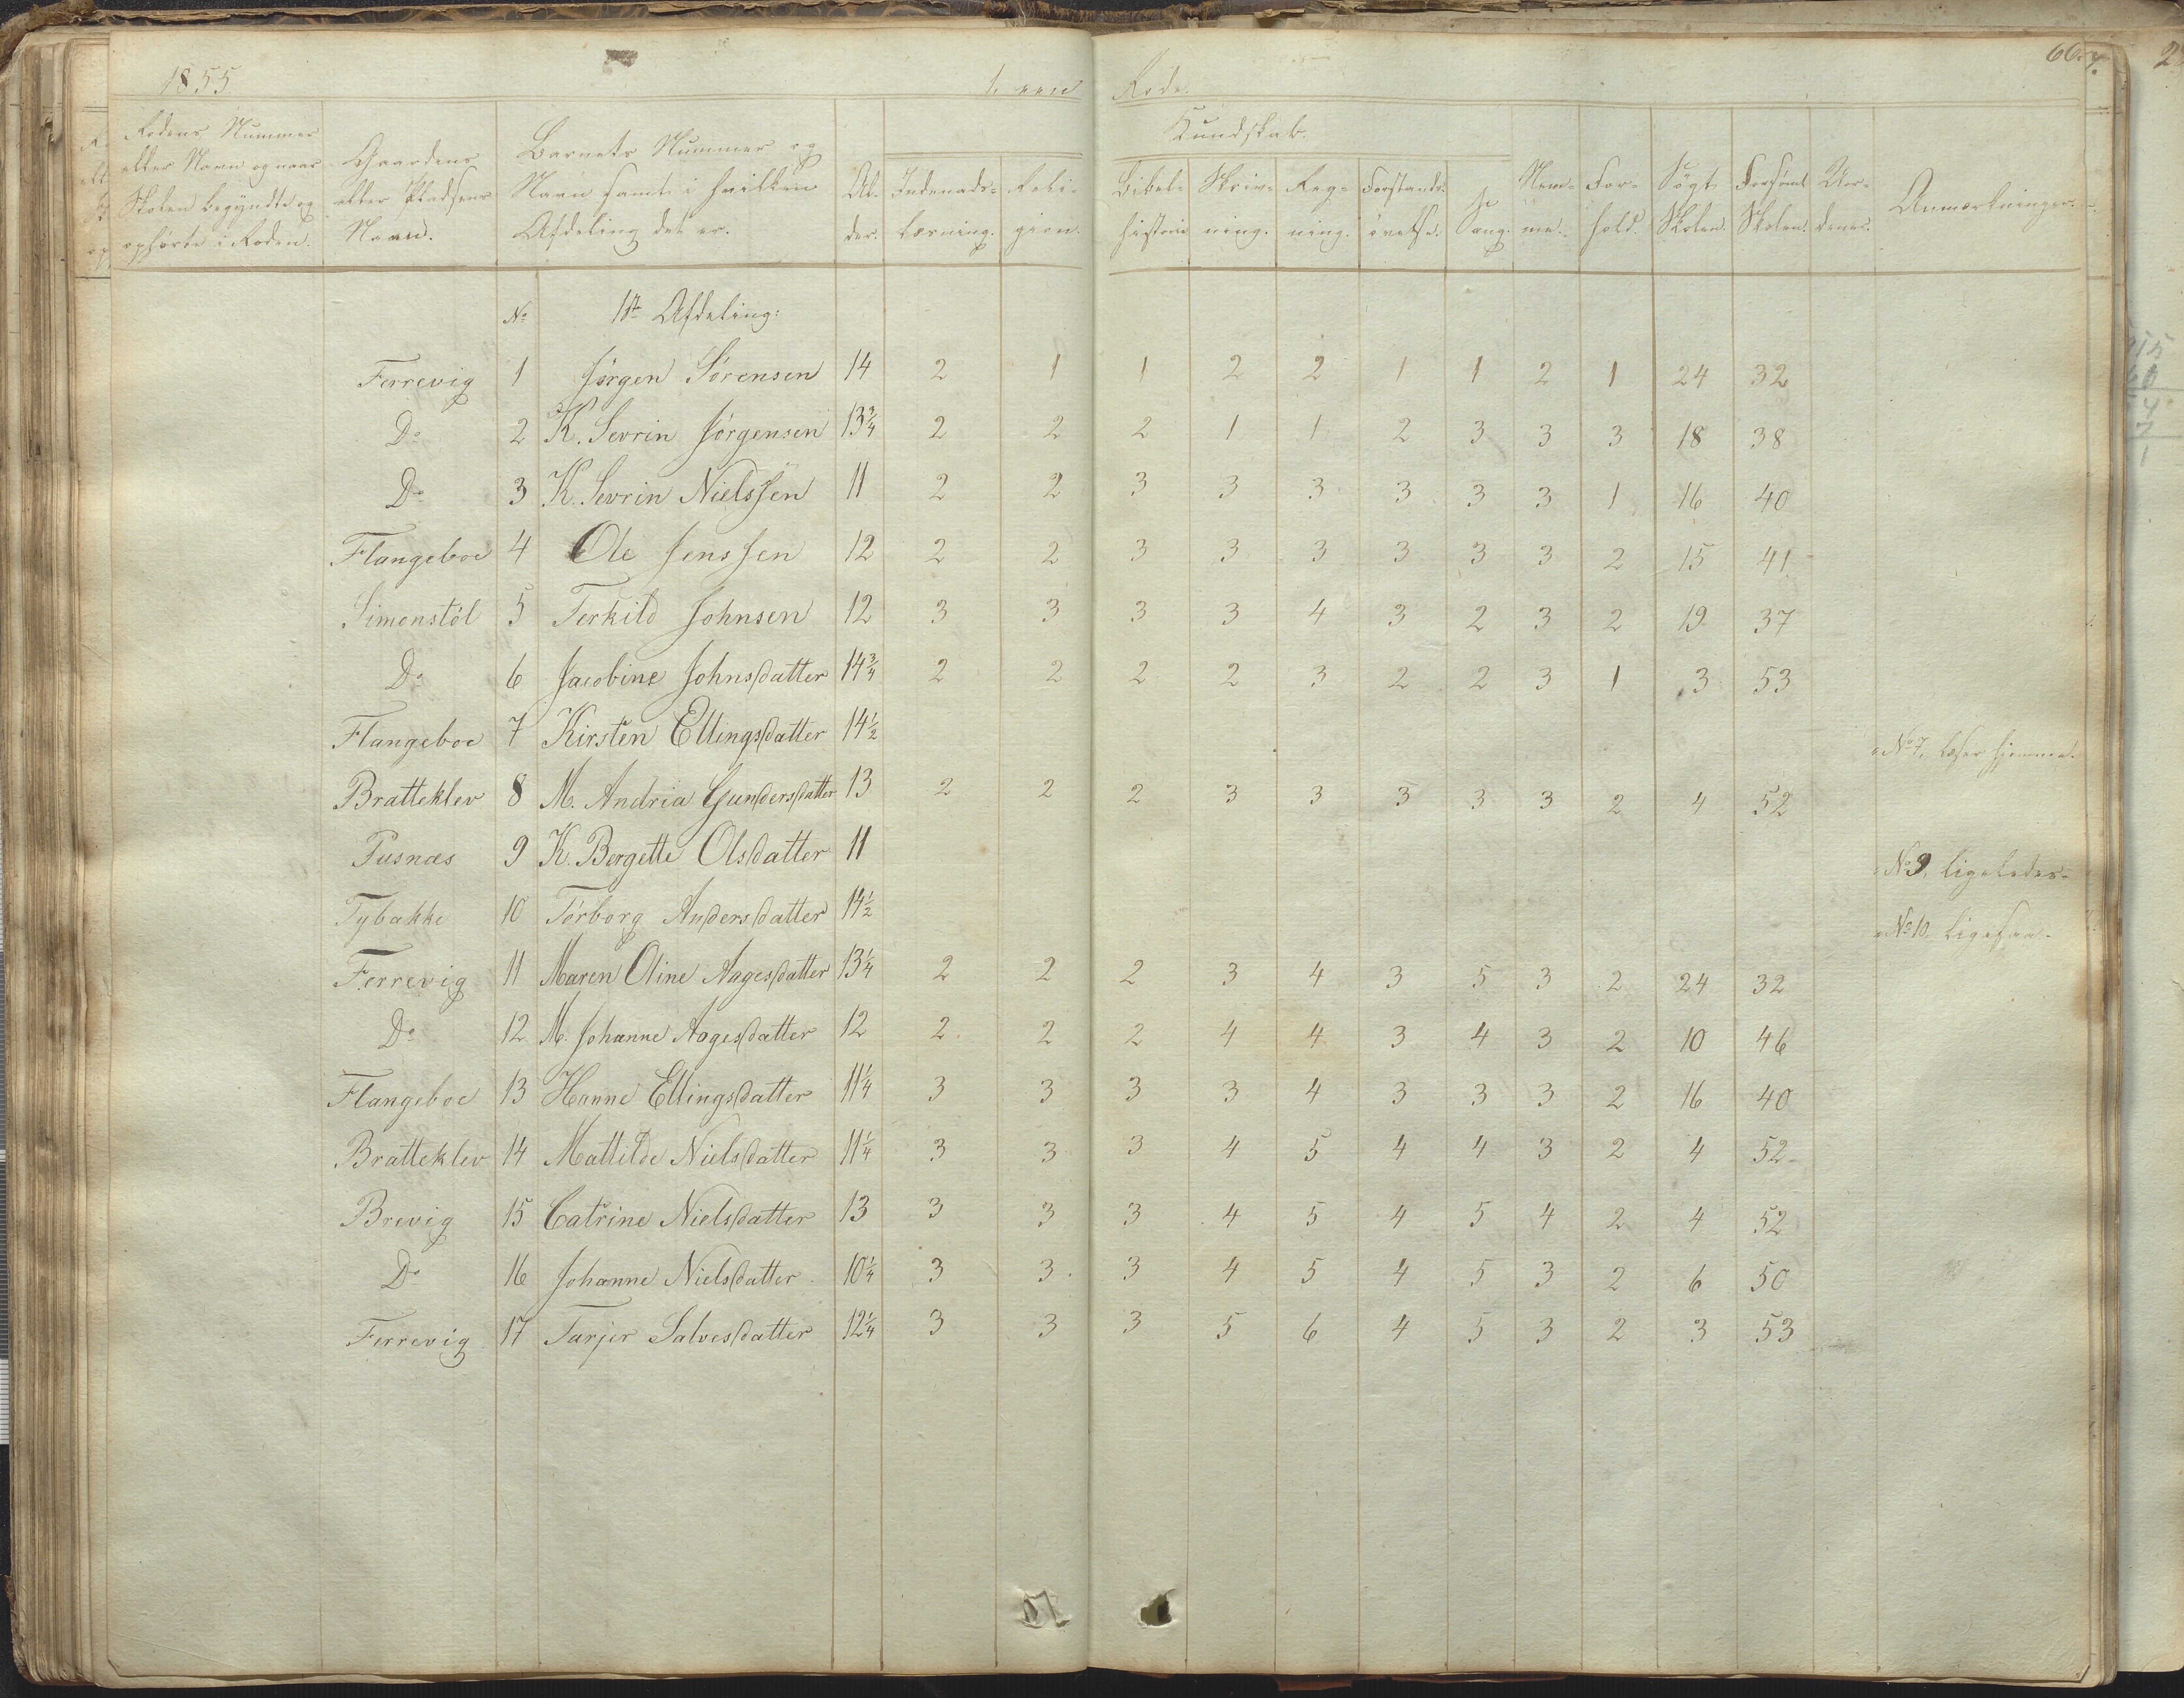 1855 1. Rode. 66.
Rodens Nummer eller Navn og naar Skolen begyndte og ophørte i Roden.
Gaardens eller Pladsens Navn.
Barnets Nummer og Navn samt i hvilken Afdeling det er.
Al-der.
Indenads-læsning.
Reli-gion.
Kundskab.
Bibel-historie
Skriv-ning.
Reg-ning.
Forstands-øvelse.
Sang.
Nem-me.
For-hold.
Søgt Skolen.
Forsømt Skolen.
Anmærkninger.
No 1st Afdeling:
Ferrevig 1 Jørgen Sørensen 14 2 1 1 2 2 1 1 2 1 24 32
Do 2 K. Sevrin Jørgensen 13¾ 2 2 2 1 1 2 3 3 3 18 38
Do 3 K. Sevrin Nielssen 11 2 2 3 3 3 3 3 3 1 16 40
Flangeboe 4 Ole Jenssen 12 2 2 3 3 3 3 3 3 2 15 41
Simonstöl 5 Terkild Johnsen 12 3 3 3 3 4 3 2 3 2 19 37
Do 6 Jacobine Johnsdatter 14¾ 2 2 2 2 3 2 2 3 1 3 53
Flangeboe 7 Kirsten Ellingsdatter 14½ No 7, læser hjemme.
Bratteklev 8 M. Andria Gundersdatter 13 2 2 2 3 3 3 3 3 2 4 52
Pusnæs 9 K. Bergette Olsdatter 11 No 9, ligeledes.
Tybakke 10 Törborg Andersdatter 14½ No 10. ligesaa.
Ferrevig 11 Maren Oline Aagesdatter 13¼ 2 2 2 3 4 3 5 3 2 24 32
Do 12 M. Johanne Aagesdatter 12 2 2 2 4 4 3 4 3 2 10 46
Flangeboe 13 Hanne Ellingsdatter 11¼ 3 3 3 3 4 3 3 3 2 16 40
Bratteklev 14 Mattilde Nielsdatter 11¼ 3 3 3 4 5 4 4 3 2 4 52
Brevig 15 Catrine Nielsdatter 13 3 3 3 4 5 4 5 4 2 4 52
Do 16 Johanne Nielsdatter 10¼ 3 3 3 4 5 4 5 3 2 6 50
Ferrevig 17 Tarjer Salvesdatter 12¼ 3 3 3 5 6 4 5 3 2 3 53